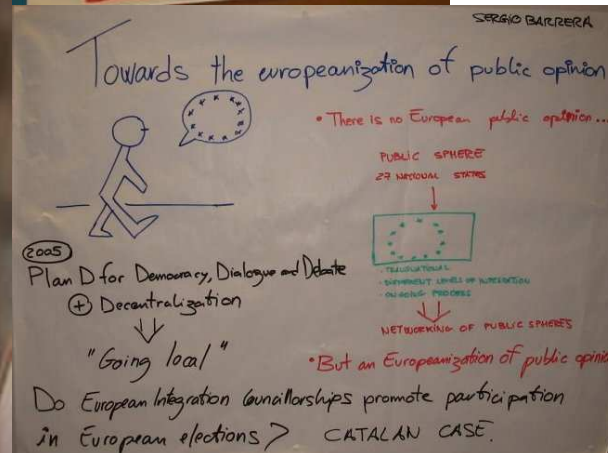 SERGIO BARRERA
Towards the europeanization of public opinion
• There is no European public opinion...
PUBLIC SPHERE
27 NATIONAL STATES
- TRANSNATIONAL
- DIFFERENT LEVELS OF INTEGRATION
- ONGOING PROCESS
NETWORKING OF PUBLIC SPHERES
• But an Europeanization of public opini
2005
Plan D for Democracy, Dialogue and Debate
+ Decentralization
"Going local"
Do European Integration Councillorships promote participation
in European elections? CATALAN CASE.